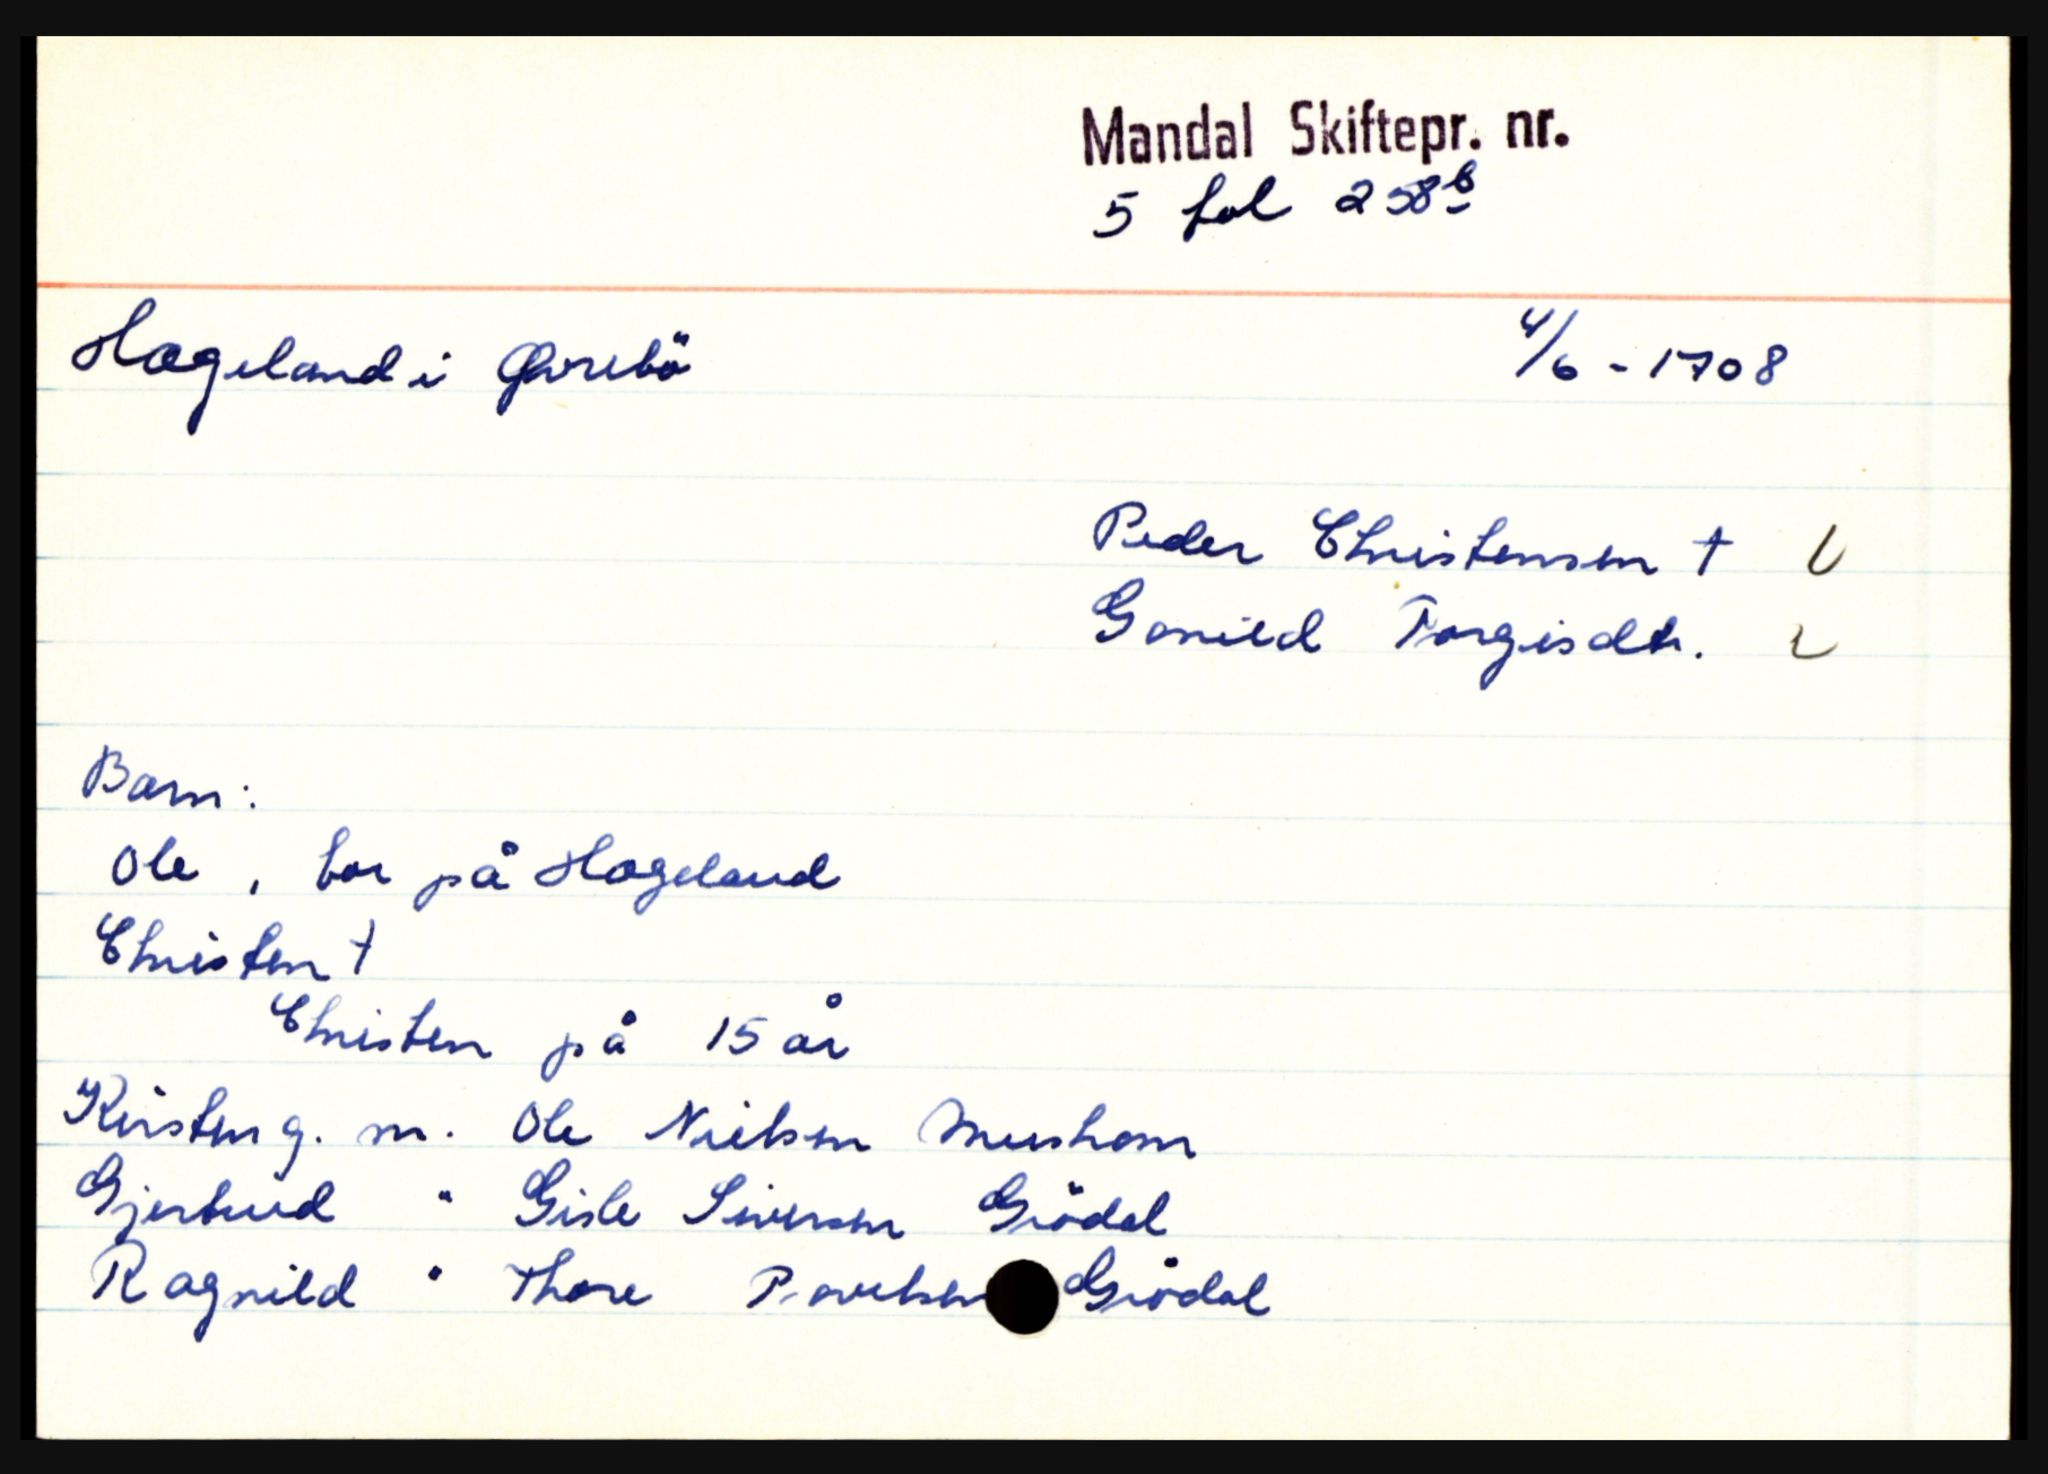 Mandal Skiftepr. nr.
5 fol 258b
Hægeland i Øvrebö
4/6 - 1708
Peder Christensen †
Gonild Torgisdtr.
Barn:
Ole, bor på Hægeland
Christen †
Christen på 15 år
Kirsten g. m. Ole Nielsen Mushom
Gjertrud " Gisle Siversen Grödal
Ragnild " Thore Povelsen Grödal